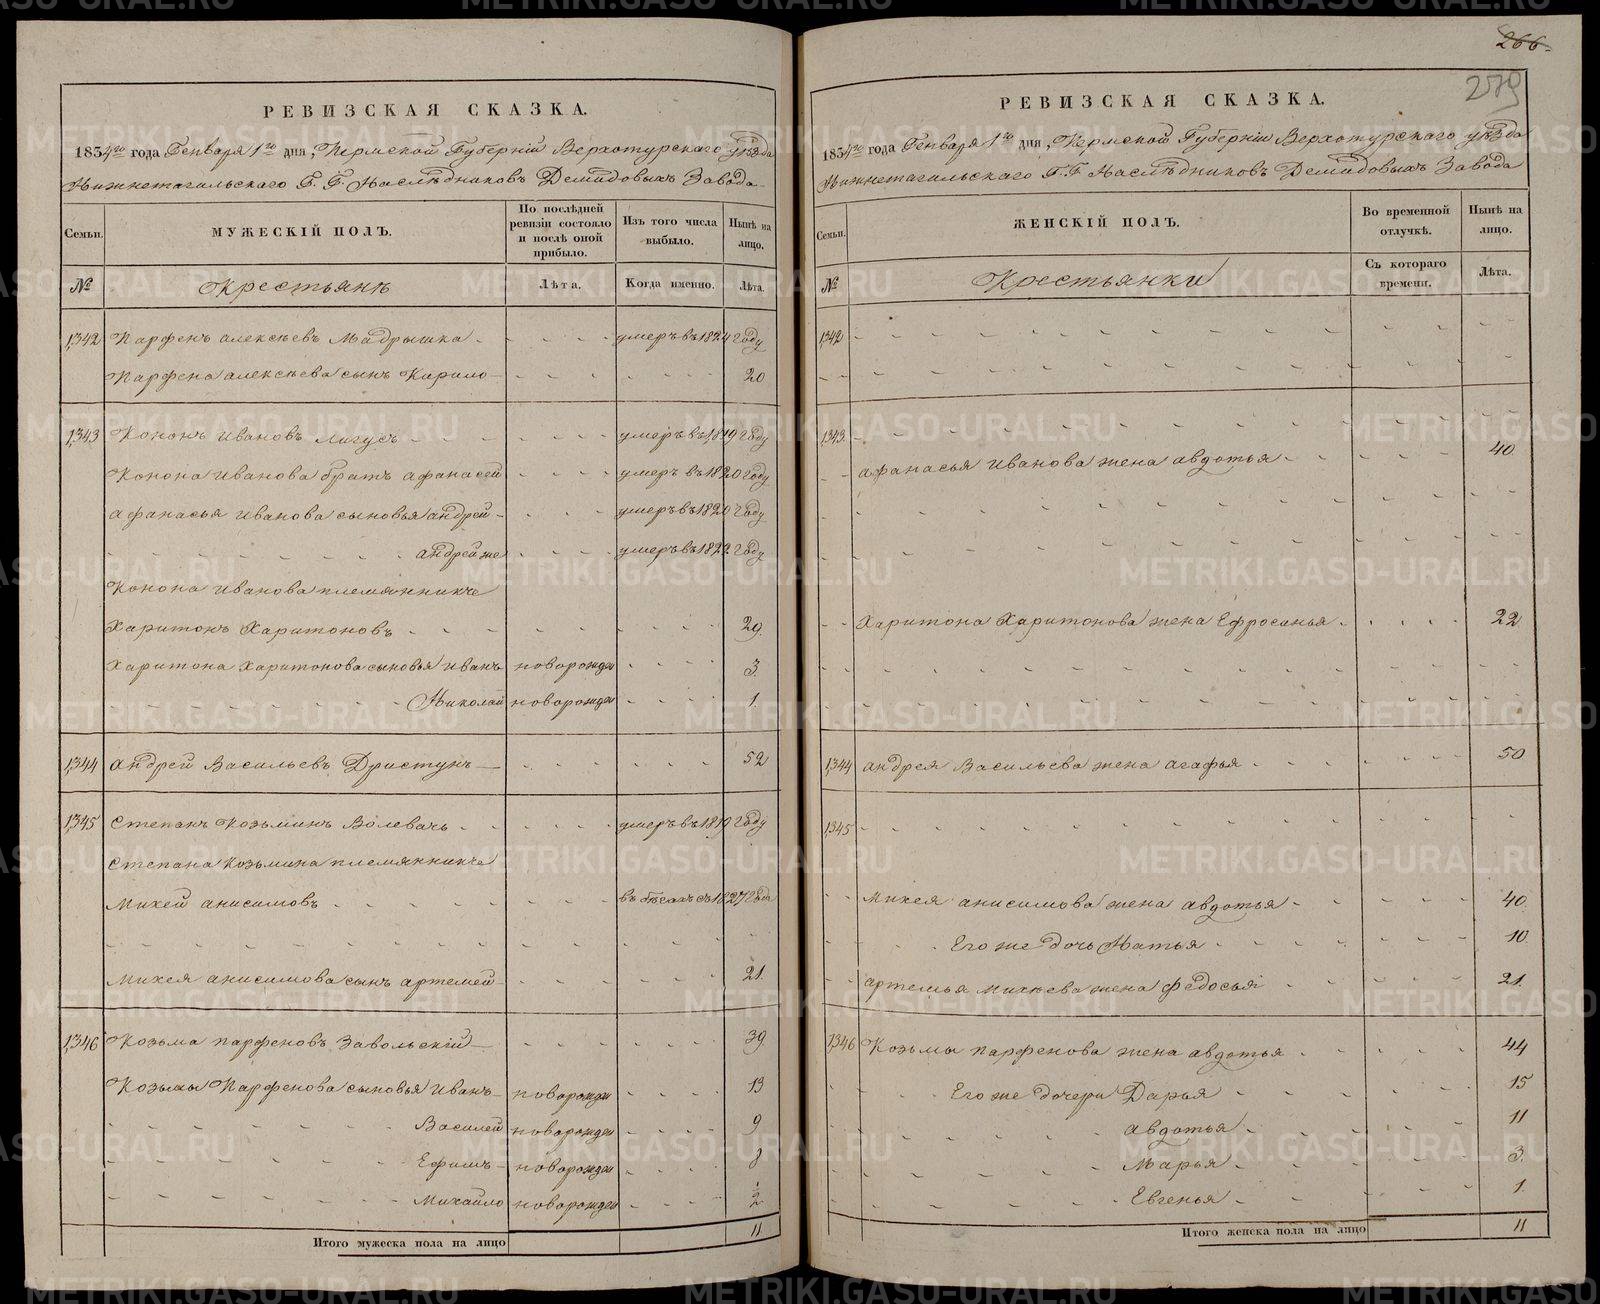 РЕВИЗСКАЯ СКАЗКА.
1834го года Генваря 1го дня, Пермской Губерніи Верхотурскаго уѣзда
Нижнетагильскаго Г. Г. Наслѣдниковъ Демидовыхъ Завода
Семьи. МУЖЕСКІЙ ПОЛЪ. По послѣдней ревизіи состояло и послѣ оной прибыло. Изъ того числа выбыло. Нынѣ на лицо.
№ Крестьянъ Лѣта. Когда именно. Лѣта.
1342 Парфенъ алексѣевъ Мадрышка умеръ въ 1824 году
Парфена алексѣева сынъ Кирило 20
1343 Кононъ Ивановъ Лигусъ умеръ въ 1819 году
Конона Иванова братъ афанасей умеръ въ 1820 году
афанасья Иванова сыновья андрей умеръ въ 1820 году
андрей же умеръ въ 1822 году
Конона Иванова племянникъ
Харитонъ Харитоновъ 29.
Харитона Харитонова сыновья Иванъ новорожден 3.
Николай новорожден 1.
1344 андрей Васильевъ Дристунъ 52
1345 Степанъ Козьминъ Волевачь умеръ въ 1819 году
Степана Козьмина племянникъ
Михей анисимовъ въ бѣгахъ съ 1827 года
Михея анисимова сынъ артемей 21.
1346 Козьма парфеновъ Завольскій 39
Козьмы Парфенова сыновья Иванъ новорожден 13
Василей новорожден 9
Ефимъ новорожден
Михайло новорожден ½
Итого мужеска пола на лицо 11
266.
279
РЕВИЗСКАЯ СКАЗКА.
1834го года Генваря 1го дня, Пермской Губерніи Верхотурскаго уѣзда
Нижнетагильскаго Г. Г. Наслѣдниковъ Демидовыхъ Завода
Семьи. ЖЕНСКІЙ ПОЛЪ. Во временной отлучкѣ. Нынѣ на лицо.
№ Крестьянки Съ котораго времени. Лѣта.
1342
1343
афанасья Иванова жена авдотья 40
Харитона Харитонова жена Ефросинья 22
1344 андрея Васильева жена агафья 50
1345
Михея анисимова жена авдотья 40
Его же дочь Натья 10.
артемья Михѣева жена Федосья 21.
1346 Козьмы парфенова жена авдотья 44
Его же дочери Дарья 15
авдотья 11
Марья 3.
Евгенья 1.
Итого женска пола на лицо 11
METRIKI.GASO-URAL.RU